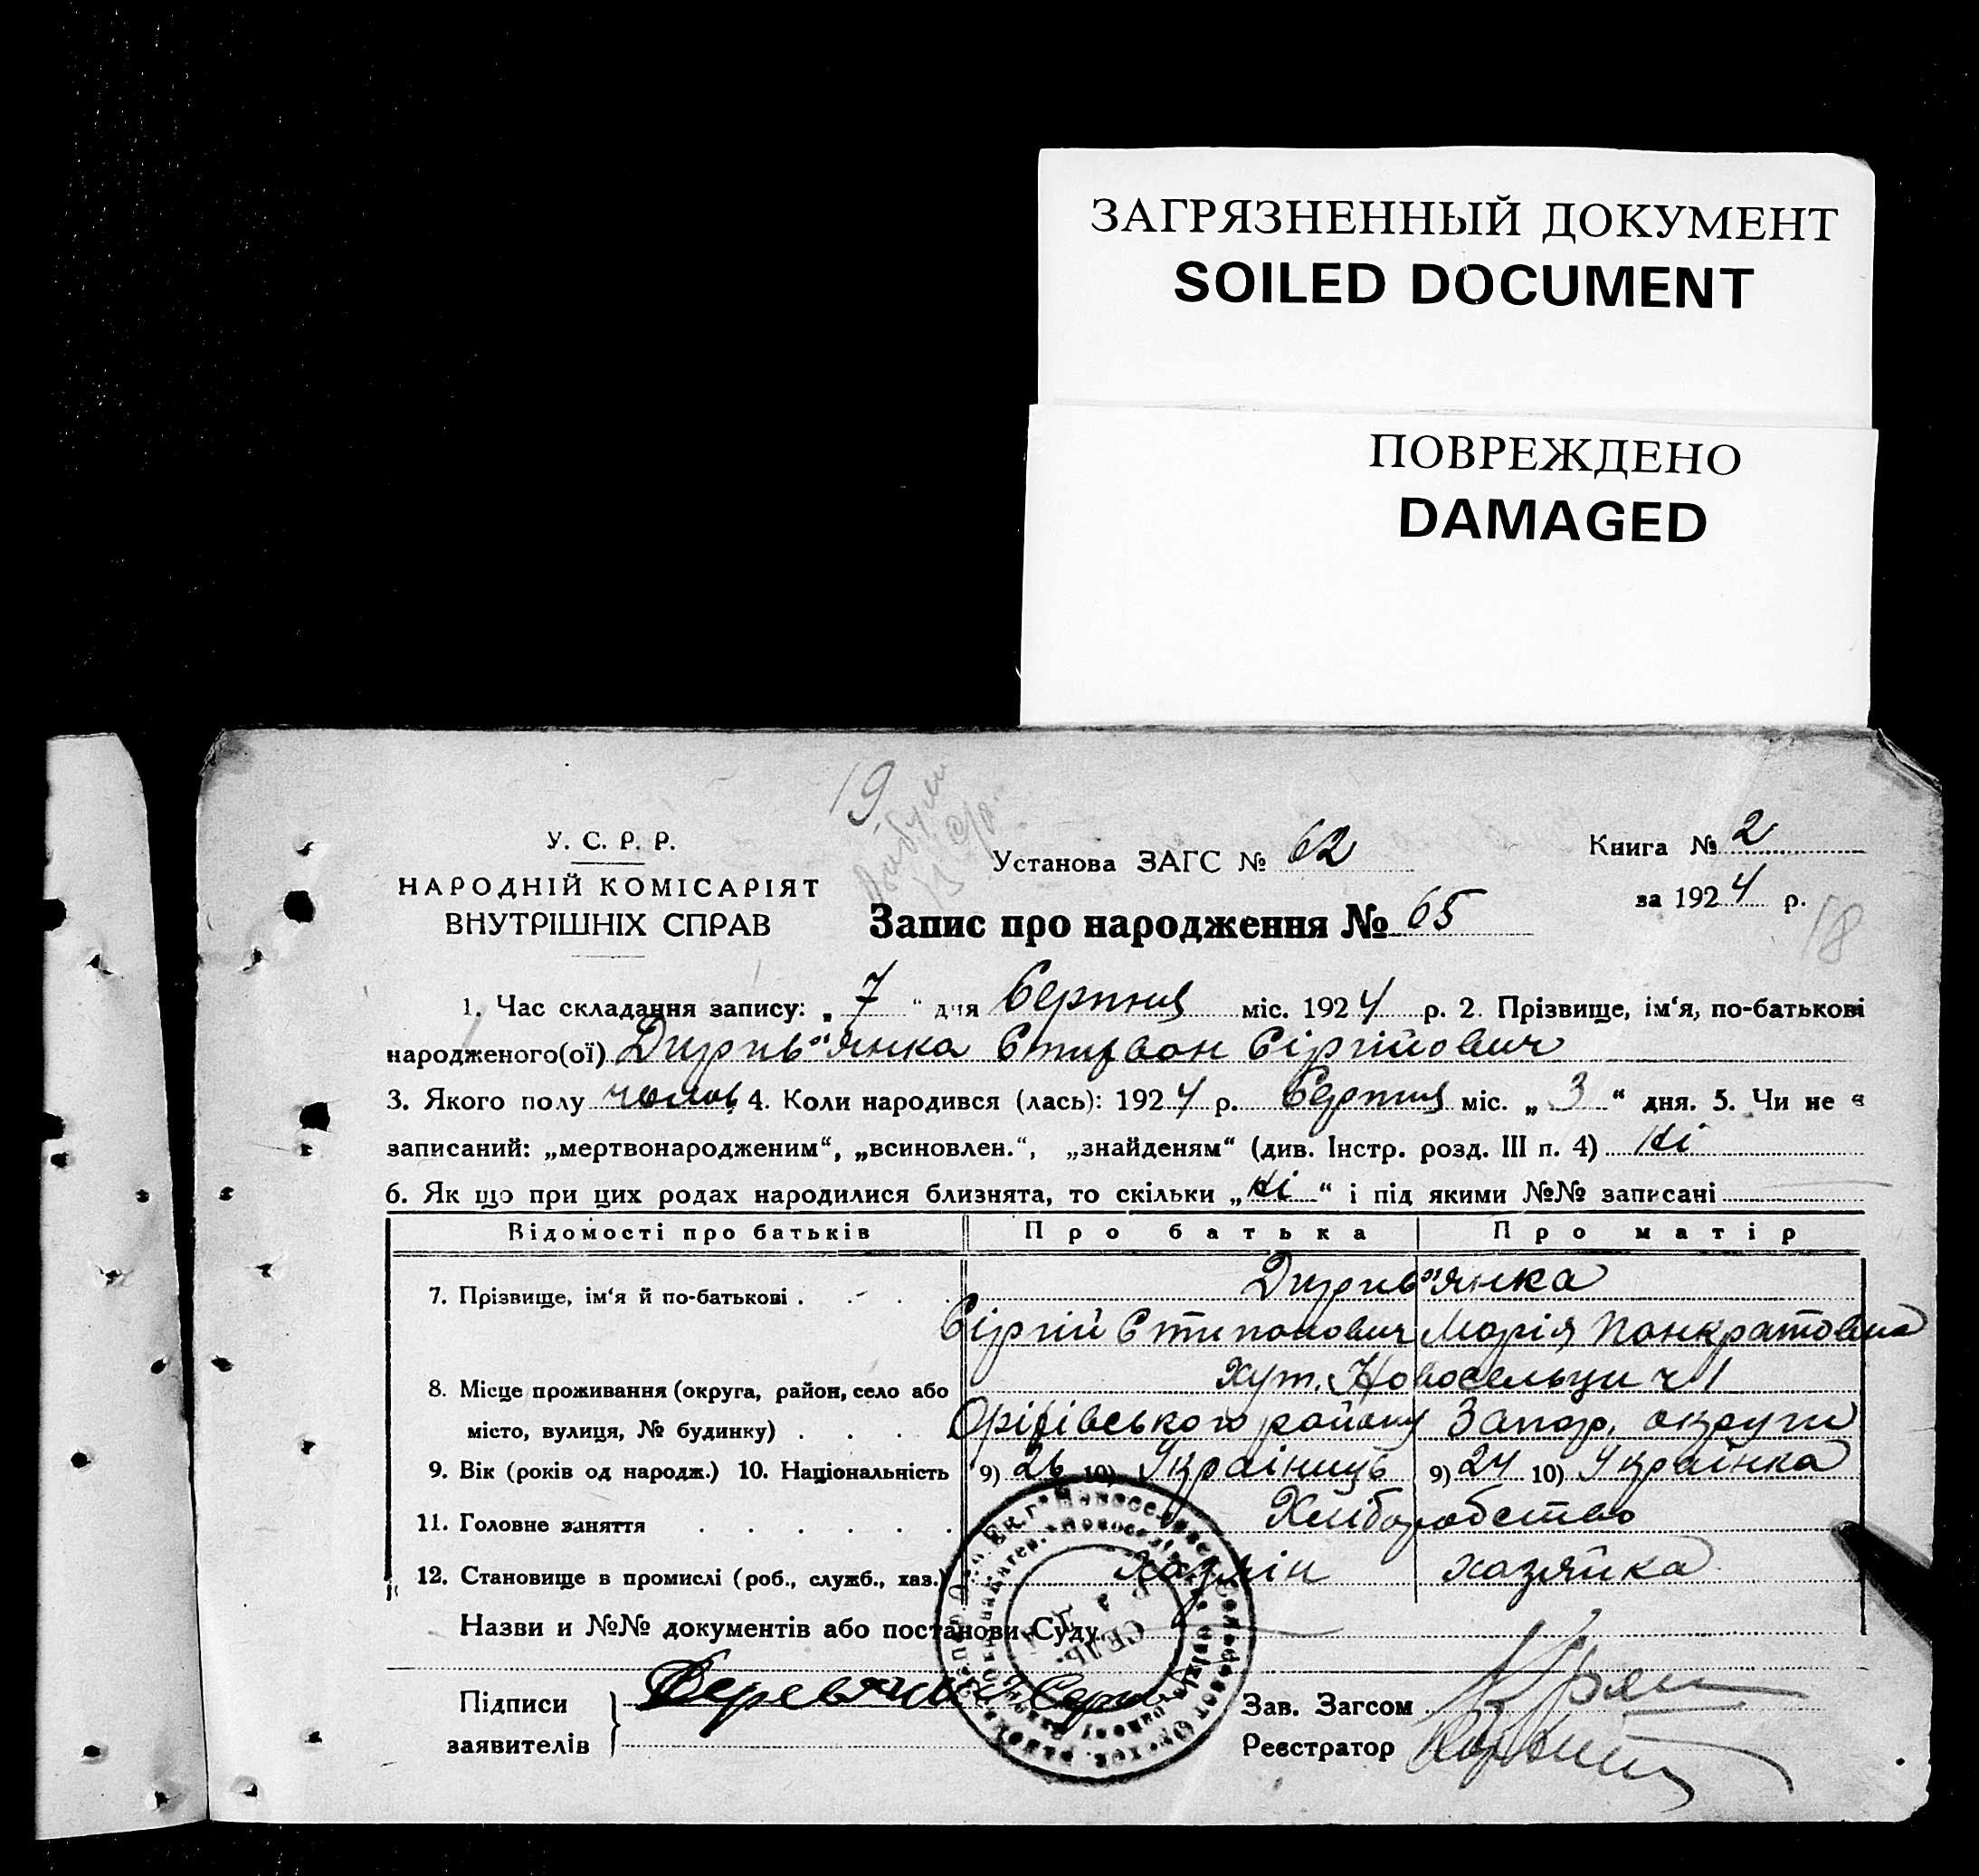 ЗАГРЯЗНЕННЫЙ ДОКУМЕНТ
SOILED DOCUMENT
ПОВРЕЖДЕНО
DAMAGED
19
У. С. Р. Р.
НАРОДНІЙ КОМІСАРІЯТ
ВНУТРІШНІХ СПРАВ
Установа ЗАГС № 62
Запис про народження № 65
Книга № 2
за 1924 р.
18
1. Час складання запису: „ 7 “ дня Серпня міс. 1924 р. 2. Прізвище, ім‘я, по-батькові
народженого(ої) Дирив"янка Стифан Сіргійович
3. Якого полу чолов. 4. Коли народився (лась): 1924 р. Серпня міс. „ 3 “ дня. 5. Чи не є
записаний: „мертвонародженим“, „всиновлен.“, „знайденям“ (див. Інстр. розд. III п. 4) Ні
6. Як що при цих родах народилися близнята, то скільки „ Ні “ і під якими №№ записані
Відомості про батьків Про батька Про матір
7. Прізвище, ім‘я й по-батькові . Дирив"янка
Сіргій Стипанович Марія Панкратовна
8. Місце проживання (округа, район, село або Хут. Новосельци ч 1
місто, вулиця, № будинку) Оріхівського району Запор. округи
9. Вік (років од народж.) 10. Національність 9) 26 10) Українець 9) 24 10) Українка
11. Головне заняття Хліборобство
12. Становище в промислі (роб., служб., хаз.) хазяін хазяйка
Назви и №№ документів або постанови Суду
Підписи
заявителів
Зав. Загсом
Реєстратор